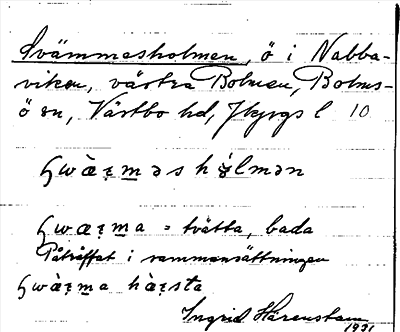 Svämmasholmen, ö i Nabba-
viken, västra Bolmen, Bolms-
ö sn, Västbo hd, Jkpgs l 10
ɕwæ̀ɾm̲əs hɷ́lmən
ɕwæɾm̲a = tvätta, bada
Påträffat i sammansättningen
ɕwæ̀ɾm̲a hæ̀ɾsta
Ingrid Härenstam
1931